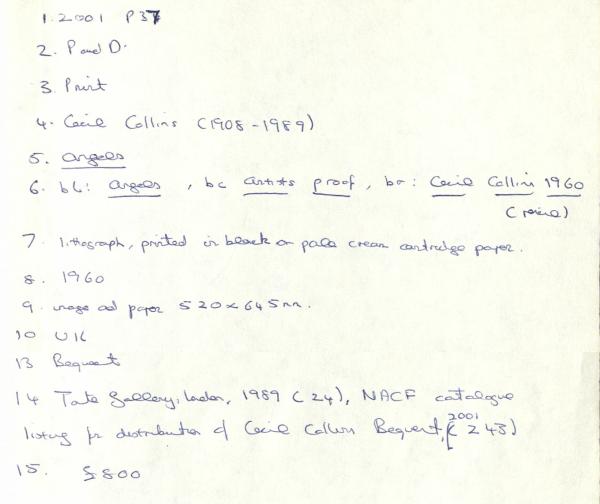 1. 2001 P37
2. P and D.
3. Print
4. Cecil Collins (1908-1989)
5. Angels
6. bl: Angels, bc artists proof, br: Cecil Collins 1960
(pencil)
7. lithograph, printed in black on pale cream cartridge paper.
8. 1960
9. image and paper 520 x 645mm.
10 UK
13 Bequest
14 Tate Gallery, London, 1989 (24), NACF catalogue
listing for distribution of Cecil Collins Bequest, 2001 (243)
15. £800